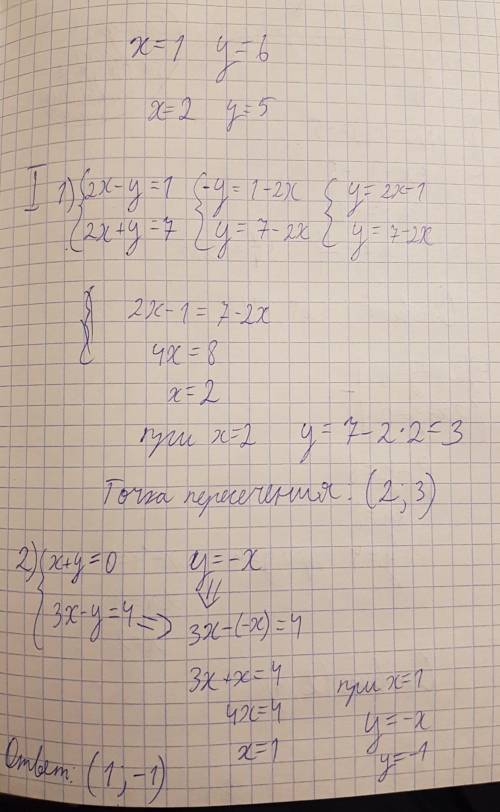 x=1 y=6
x=2 y=5
I 1) {2x-y=1 {-y=1-2x {y=2x-1
{2x+y=7 {y=7-2x {y=7-2x
2x-1=7-2x
4x=8
x=2
при x=2 y=7-2·2=3
Точка пересечения: (2;3)
2) {x+y=0 y=-x
{3x-y=4 => 3x-(-x)=4
3x+x=4 при x=1
4x=4 y=-x
x=1 y=-1
Ответ: (1;-1)